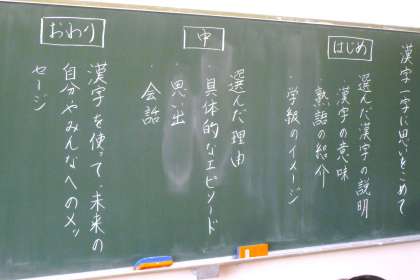 漢字一字に思いをこめて
はじめ
選んだ漢字の説明
漢字の意味
熟語の紹介
・学級のイメージ
中
選んだ理由
・具体的なエピソード
・思い出
・会話
おわり
漢字を使って、未来の
自分やみんなへのメッ
セージ